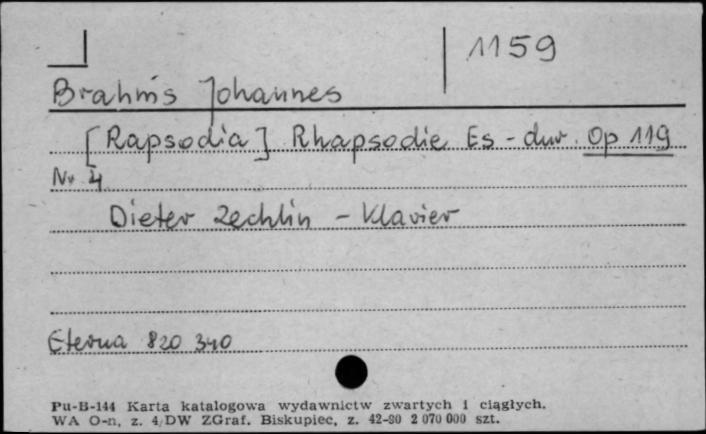 1159
Brahms Johannes
[Rapsodia] Rhapsodie Es-dur. Op 119
Nr 4
Dieter Zechlin - Klavier
Eterna 820 340
Pu-B-144 Karta katalogowa wydawnictw zwartych i ciągłych.
WA O-n, z. 4/DW ZGraf. Biskupiec, z. 42-80 2 070 000 szt.